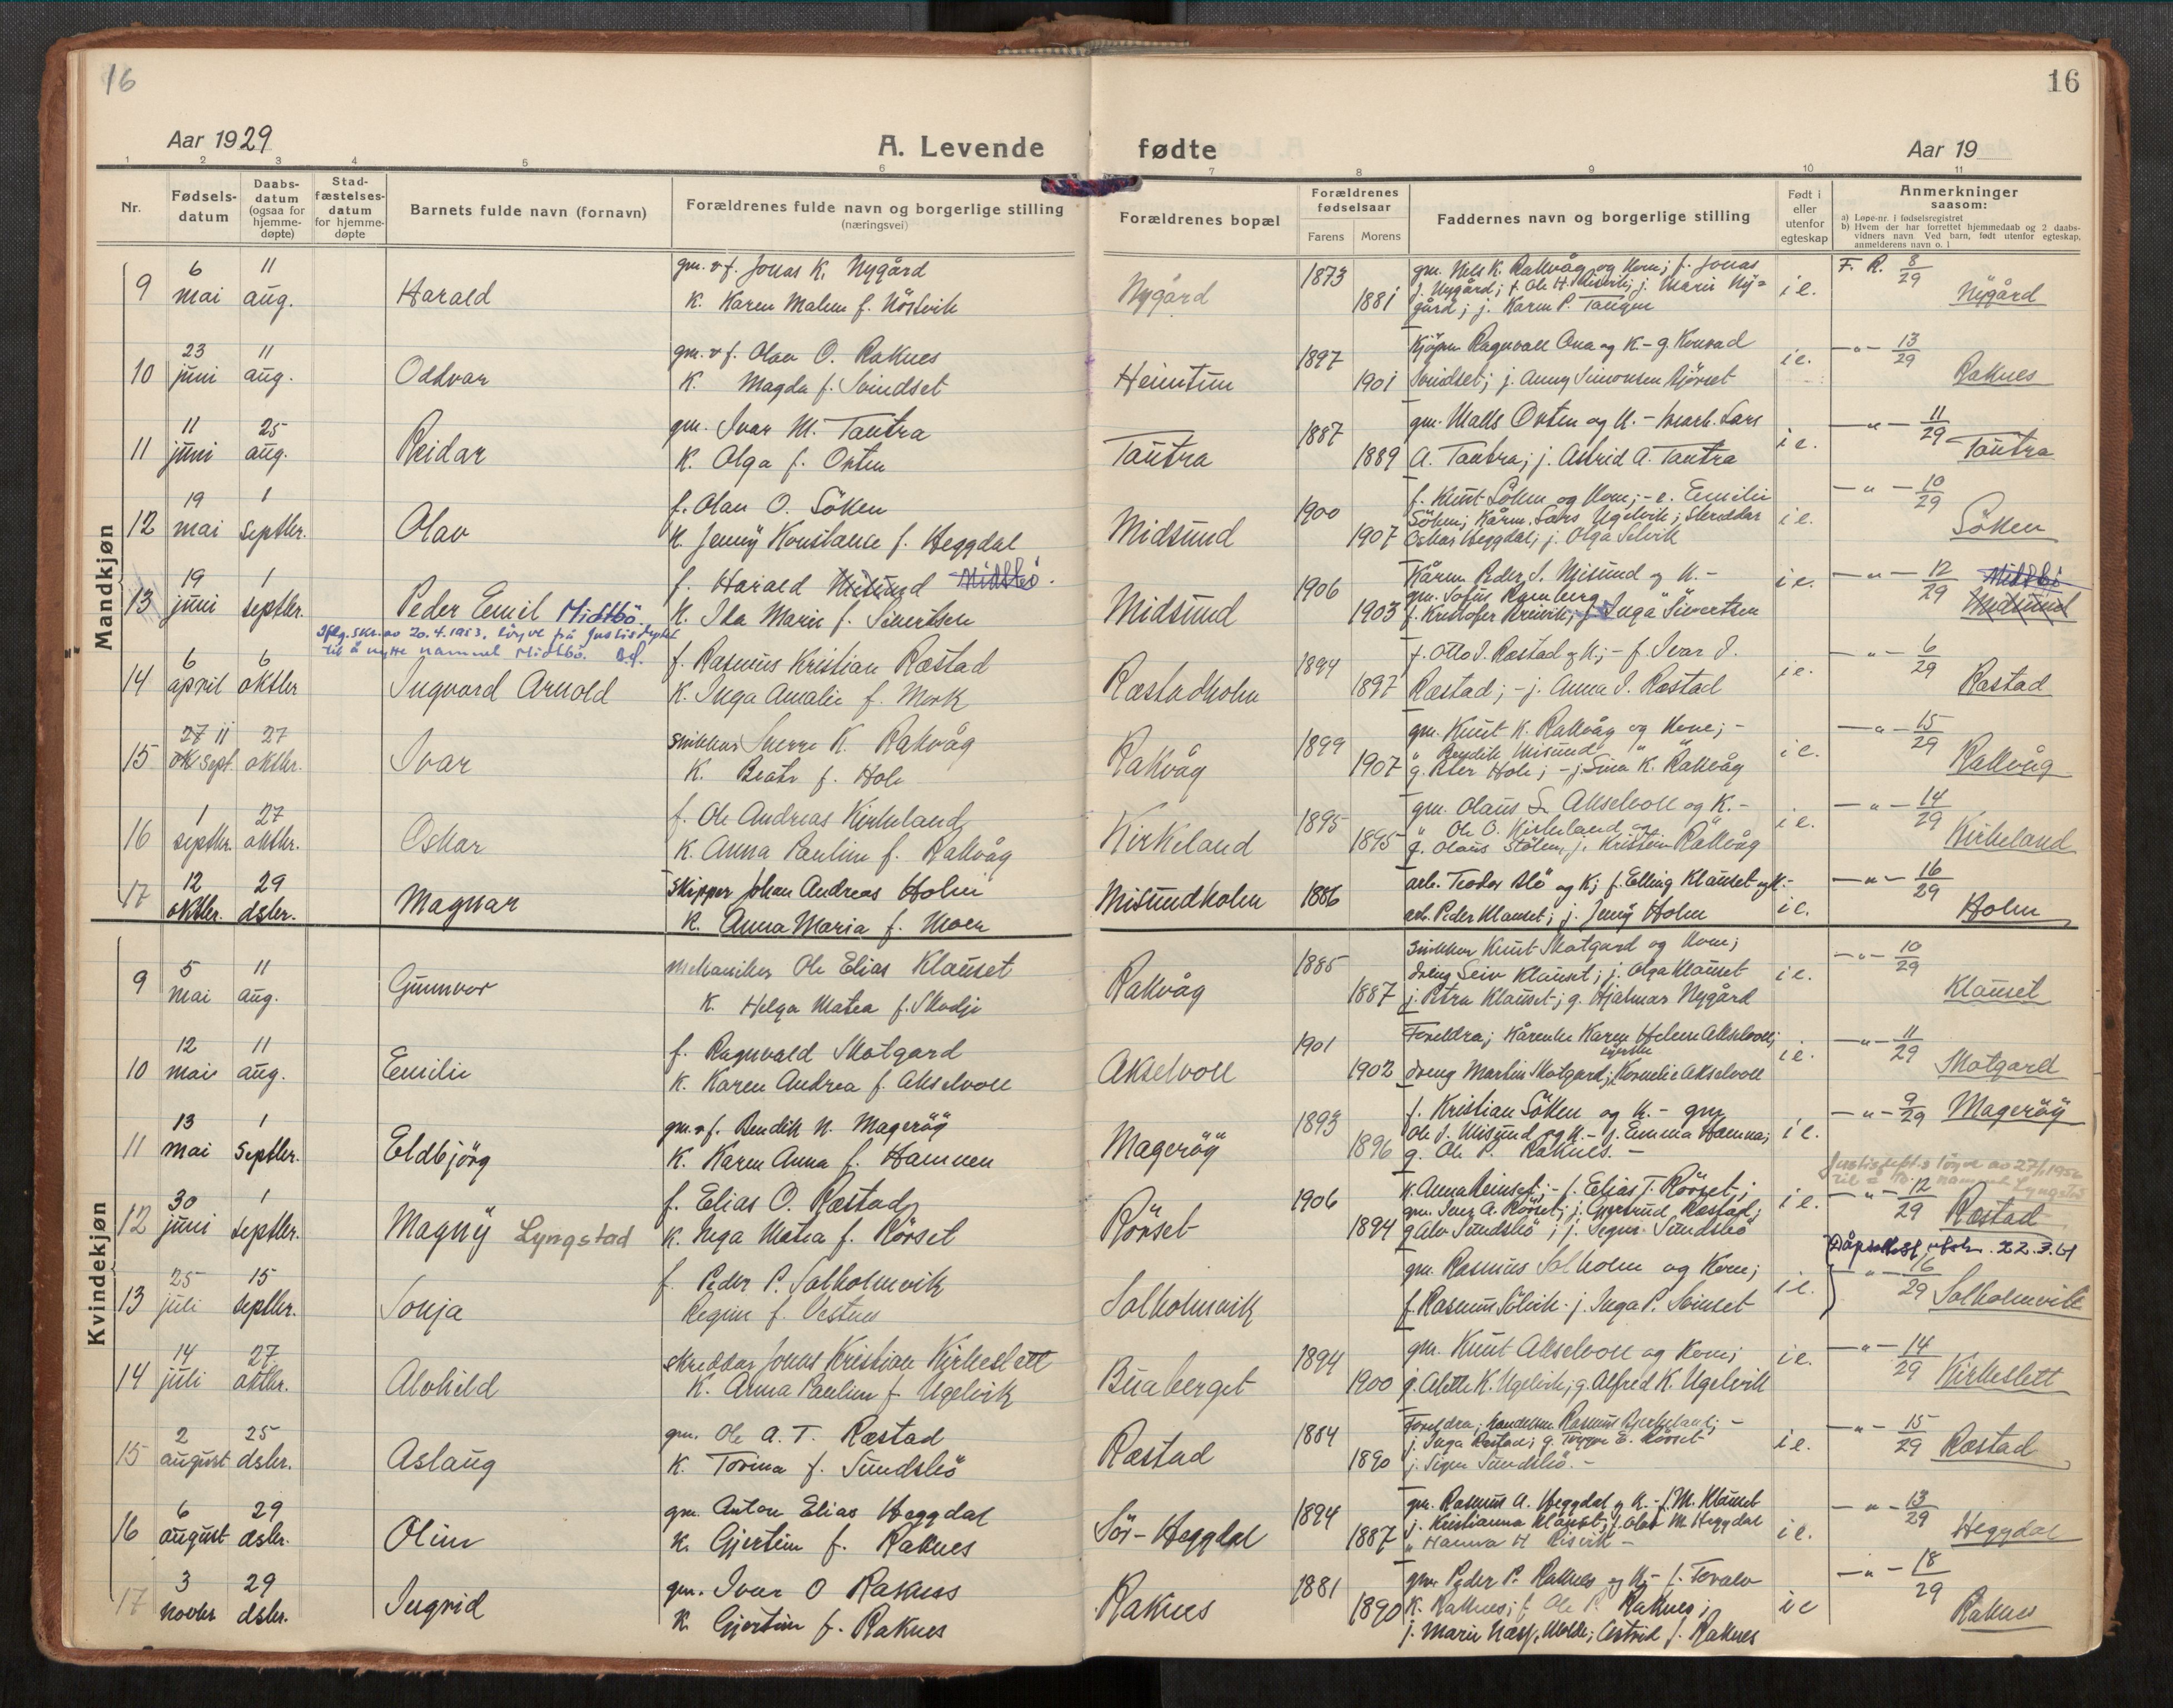 16
16
Aar 1929
A. Levende fødte
Aar 19
1 2 3 4 5 6 7 8 9 10 11
Nr.
Fødsels-datum
Daabs-datum (ogsaa for hjemme-døpte)
Stad-fæstelses-datum for hjemme-døpte
Barnets fulde navn (fornavn)
Forældrenes fulde navn og borgerlige stilling (næringsvei)
Forældrenes bopæl
Forældrenes fødselsaar
Farens Morens
Faddernes navn og borgerlige stilling
Født i eller utenfor egteskap
Anmerkninger saasom:
a) Løpe-nr. i fødselsregistret
b) Hvem der har forrettet hjemmedaab og 2 daabs-vidners navn Ved barn, født utenfor egteskap, anmelderens navn o. l
Mandkjøn
9 6 mai 11 aug. Harald
gm. & f. Jonas K. Nygård
K. Karen Malene f. Nöstvik
Nygård 1873 1881
gm. Nils K. Rakvåg og Kone; f. Jonas
J. Nygård; f. Ole H. j. Marie Ny=
gård; j. Karen P. Tangen
i e. F. R. 8/29 Nygård
10 23 juni 11 aug. Oddvar
gm. & f. Olav O. Raknes
K. Magda f. Svindset
Heimtun 1897 1901
Kjöpm. Ragnvald Ona og K. - g. Konrad
Svindset; j. Anny Simonsen Björset
i e. -"- 13/29 Raknes
11 11 juni 25 aug. Reidar
gm. Ivar M. Tautra
K. Olga f. Orten
Tautra 1887 1889
gm. Mats Orten og K. - Lars
A. Tautra; j. Astrid A. Tautra
i e. -"- 11/29 Tautra
12 19 mai 1 septbr. Olav
f. Olav O. Söken
K. Jenny Konstanse f. Heggdal
Midsund 1900 1907
f. Knut Söken og Kone; - e. Emilie
Söken; Kårm. Lars Ugelvik; Skreddar
Oskar Heggdal; j. Olga Selvik
i e. -"- 10/29 Söken
13 19 juni 1 septbr. Peder Emil Midtbö.
Iflg. skr. av 20.4.1953. löyve frå Justisdeptet
til å nytte namnet Midtbö.
f. Harald Misund Midtbö.
K. Ida Marie f. Sivertsen
Midsund 1906 1903
Kårm. Peder J. Misund og K. -
gm. Sofus Ramberg
f. Kristofer Breivik; j. Inga Sivertsen
i e. -"- 12/29 Midtbö Midsund
14 6 april 6 oktbr Ingvard Arnold
f. Rasmus Kristian Ræstad
K. Inga Amalie f. Mork
Ræstadholm 1894 1897
f. Otto J. Ræstad og K; - f. Ivar J.
Ræstad; - j. Anna J. Ræstad
i e. -"- 6/29 Ræstad
15 27 11 ok sept. 27 oktbr. Ivar
snikkar Sverre K. Rakvåg
K. Beate f. Hole
Rakvåg 1899 1907
gm. Knut K. Rakvåg og Kone; -
" Bendik Misund " "
g. Peter Hole; - j. Lina K. Rakvåg
i e. -"- 15/29 Rakvåg
16 1 septbr. 27 oktbr. Oskar
f. Ole Andreas Kirkeland
K. Anna Pauline f. Rakvåg
Kirkeland 1895 1895
gm. Olaus S. Akselvoll og K. -
" Ole O. Kirkeland og "
g. Olaus Stölen, j. Kristine Rakvåg
i e. -"- 14/29 Kirkeland
17 12 oktbr. 29 dsbr. Magnar
Skipper Johan Andreas Holm
K. Anna Maria f. Moen
Misundholm 1886
arb. Teodor og K; f. Elling Klauset og K. -
arb. Peder Klauset; j. Jenny Holm
i e. -"- 16/29 Holm
Kvindekjøn
9 5 mai 11 aug. Gunnvor
mekaniker Ole Elias Klauset
K. Helga Matea f. Skodje
Rakvåg 1885 1887
snikkar Knut Skotgard og Kone;
dreng Klauset; j. Olga Klauset
j. Petra Klauset; g. Hjalmar Nygård
i e. -"- 10/29 Klauset
10 12 mai 11 aug. Emilie
f. Ragnvald Skotgard
K. Karen Andrea f. Akselvoll
Akselvoll 1901 1902
Foreldra; Kårenke Karen Helene Akselvoll;
dreng Martin Skotgard; Kornelie Akselvoll
i e. -"- 11/29 Skotgard
11 13 mai 1 septbr. Eldbjörg
gm. & f. Bendik N. Mageröy
K. Karen Anna f. Hamnen
Mageröy 1893 1896
f. Kristian Söken og K. - gm.
Ole J. Misund og K. - j. Emma Hamna;
g. Ole P. Raknes. -
i e. -"- 9/29 Mageröy
12 30 juni 1 septbr. Magny Lyngstad
f. Elias O. Ræstad
K. Inga Matea f. Rörset
Rörset 1906 1894
K. Anna Heinset; - f. Elias T. Rörset;
gm. Iver A. Rörset; j. Gjertrud Ræstad;
g Alv Sundsbö; j. Signe Sundsbö
i e. -"- 12/29 Ræstad
Justisdept.s löyve av 27/1.1950
til å namnet Lyngstad
Dåpsattest utskr. 22.3.61
13 25 juli 15 septbr. Sonja
f. Peder P. Solholmvik
Regine f. Orstnes
Solholmvik
gm. Rasmus Solholm og Kone;
f. Rasmus Sölvik. j. Inga P. Svinset
i e. -"- 16/29 Solholmvik
14 14 juli 27 oktbr. Alvhild
skreddar Jonas Kristian Kirkeslett
K. Anna Pauline f. Ugelvik
Buaberget 1894 1900
gm. Knut Akselvoll og Kone;
j. Alette K. Ugelvik; g. Alfred K. Ugelvik
i e. -"- 14/29 Kirkeslett
15 2 august 25 dsbr. Aslaug
gm. Ole A. T. Ræstad
K. Torina f. Sundsbö
Ræstad 1884 1890
Foreldra; handelsm. Rasmus Bjerkeland; -
j. Inga Ræstad; g. Trygve E. Rörset
j. Signe Sundsbö. -
i e. -"- 15/29 Ræstad
16 6 august 29 dsbr. Oline
gm. Anton Elias Heggdal
K. Gjertine f. Raknes
Sör-Heggdal 1894 1887
gm. Rasmus A. Heggdal og K. - f. M. Klauset
j. Kristianna Klauset; f. Olav M. Heggdal
" Hanna H. Risvik -
i e. -"- 13/29 Heggdal
17 3 novbr 29 dsbr. Ingrid
gm. Ivar O Raknes
K. Gjertine f. Raknes
Raknes 1881 1890
gm. Peder P. Raknes og K; - f. Toralv
K. Raknes; f. Ole P. Raknes;
j. Marie Næss, Molde; Astrid J. Raknes
i e -"- 18/29 Raknes